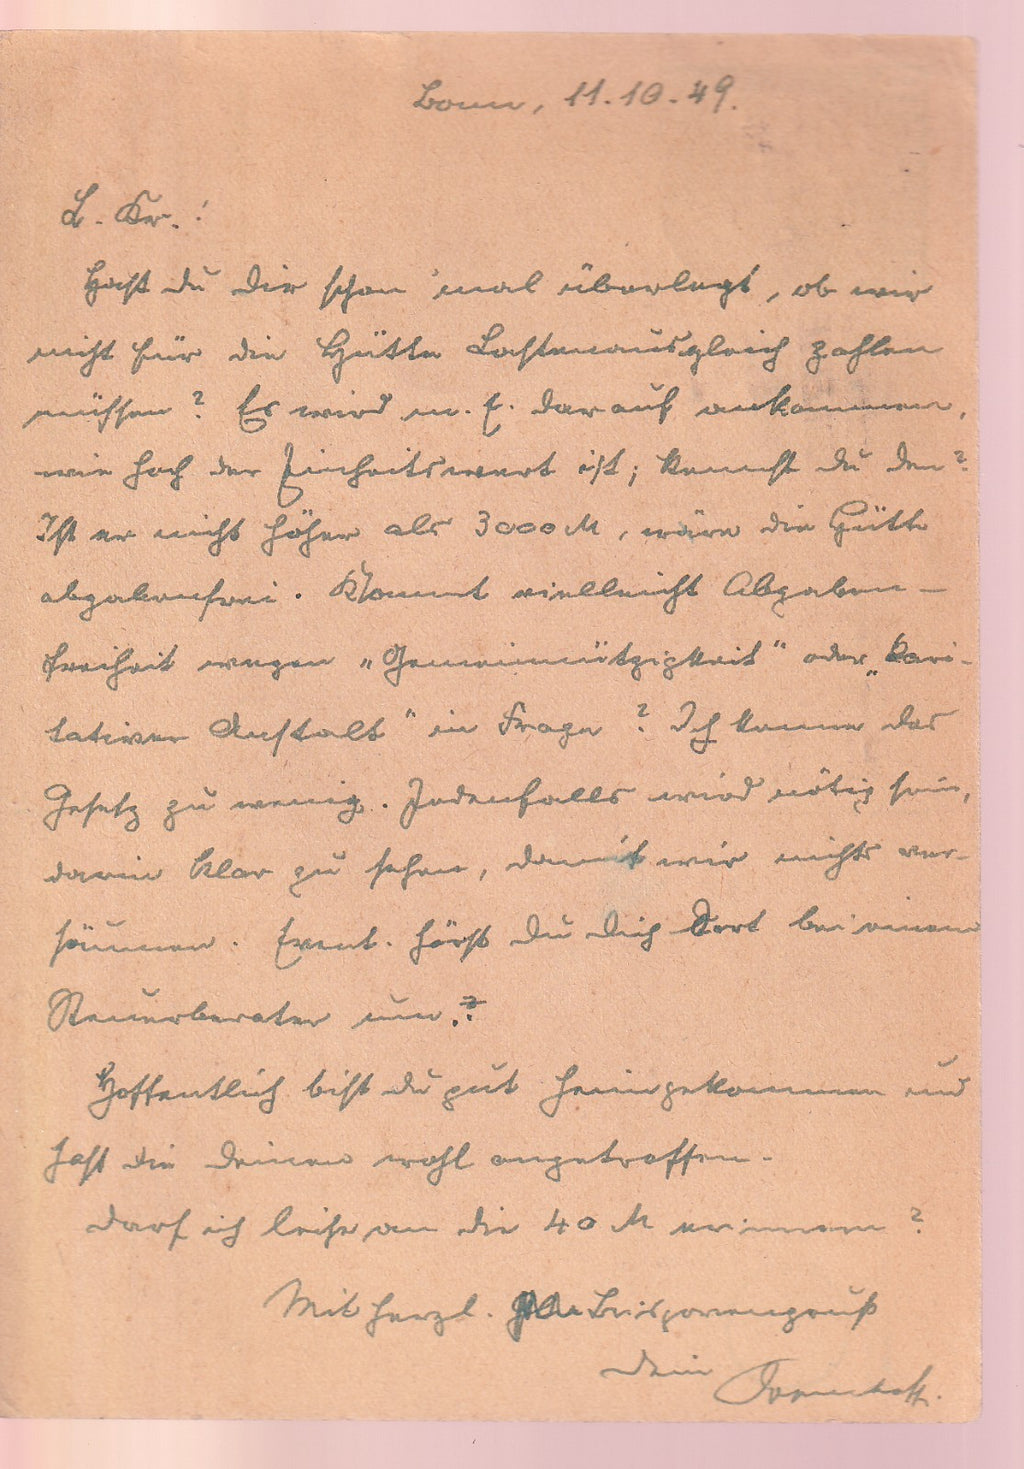 Bonn, 11.10.49.
L. Kr.!
Hast du dir schon mal überlegt, ob wir
nicht für die Hütte Lastenausgleich zahlen
müssen? Es wird m. E. darauf ankommen,
wie hoch der Einheitswert ist; kennst du den?
Ist er nicht höher als 3000 M, wäre die Hütte
abgabenfrei. Kommt vielleicht Abgaben-
freiheit wegen „Gemeinnützigkeit" oder „kari-
tativer Anstalt" in Frage? Ich kenne das
Gesetz zu wenig. Jedenfalls wird nötig sein,
darin klar zu sehen, damit wir nichts ver-
säumen. Event. hörst du dich dort bei einem
Steuerberater um.
Hoffentlich bist du gut heimgekommen und
hast die deinen wohl angetroffen.
Darf ich leise an die 40 M erinnern?
Mit herzl.
Dein